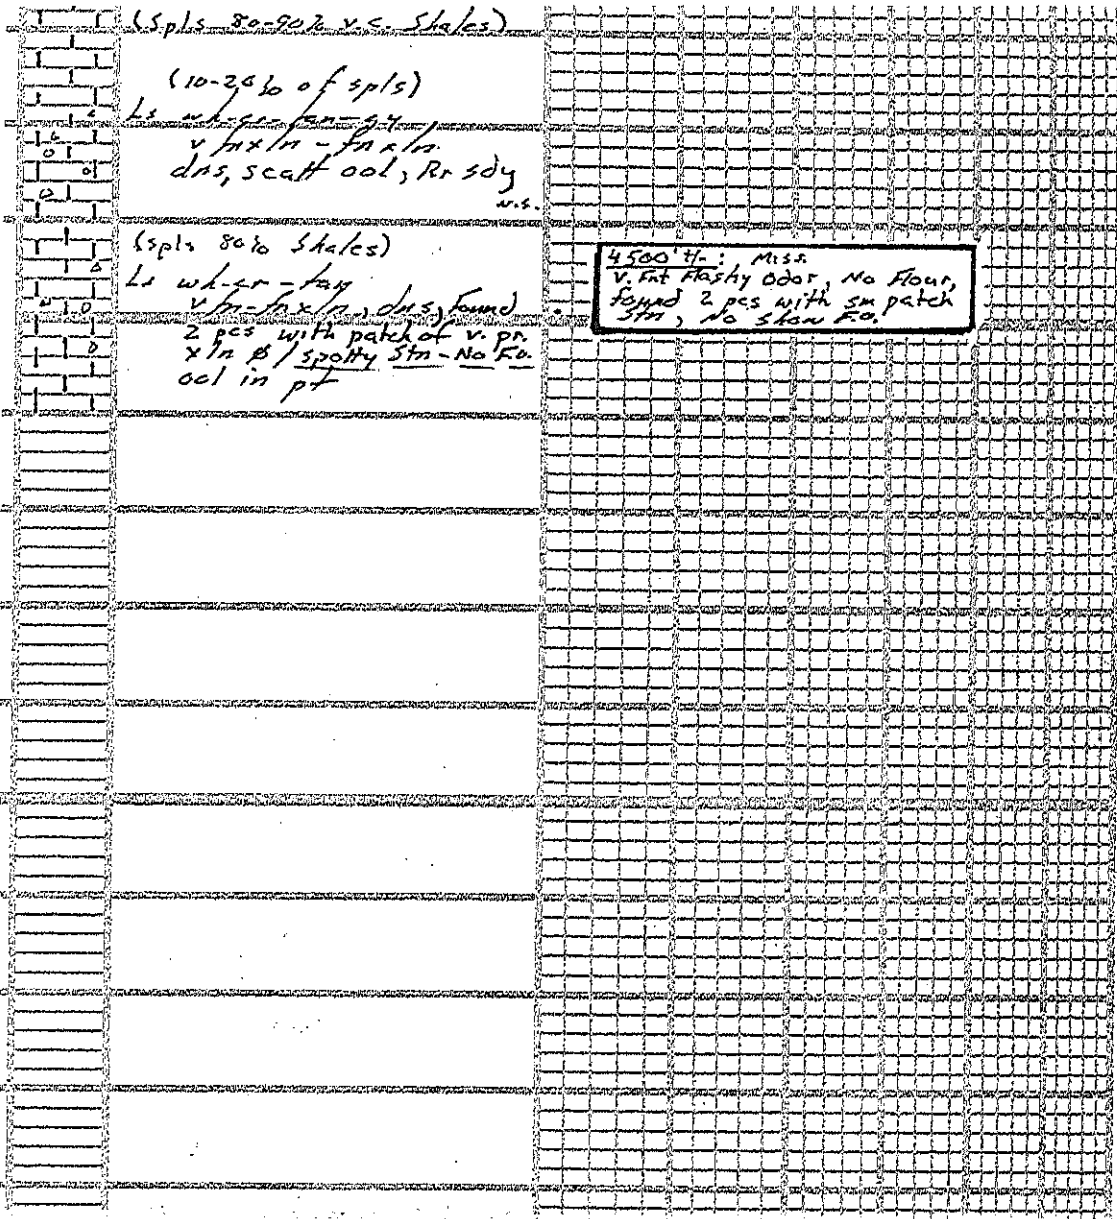 (Spls 80-90% v.c. Shales)
(10-20% of spls)
Ls wh-cr-tan-gy
v fnxln - fnxln
dns, scatt ool, Rr sdy
N.S.
(spls 80% Shales)
Ls wh-cr-tan
v fn-fnxln, dns, found
2 pcs with patch of v. pr.
xln ø / spotty Stn - No Fo.
ool in pt
4500' +/-: Miss.
v. Fnt Flashy Odor, No Flour,
found 2 pcs with sm patch
Stn, No Show F.O.